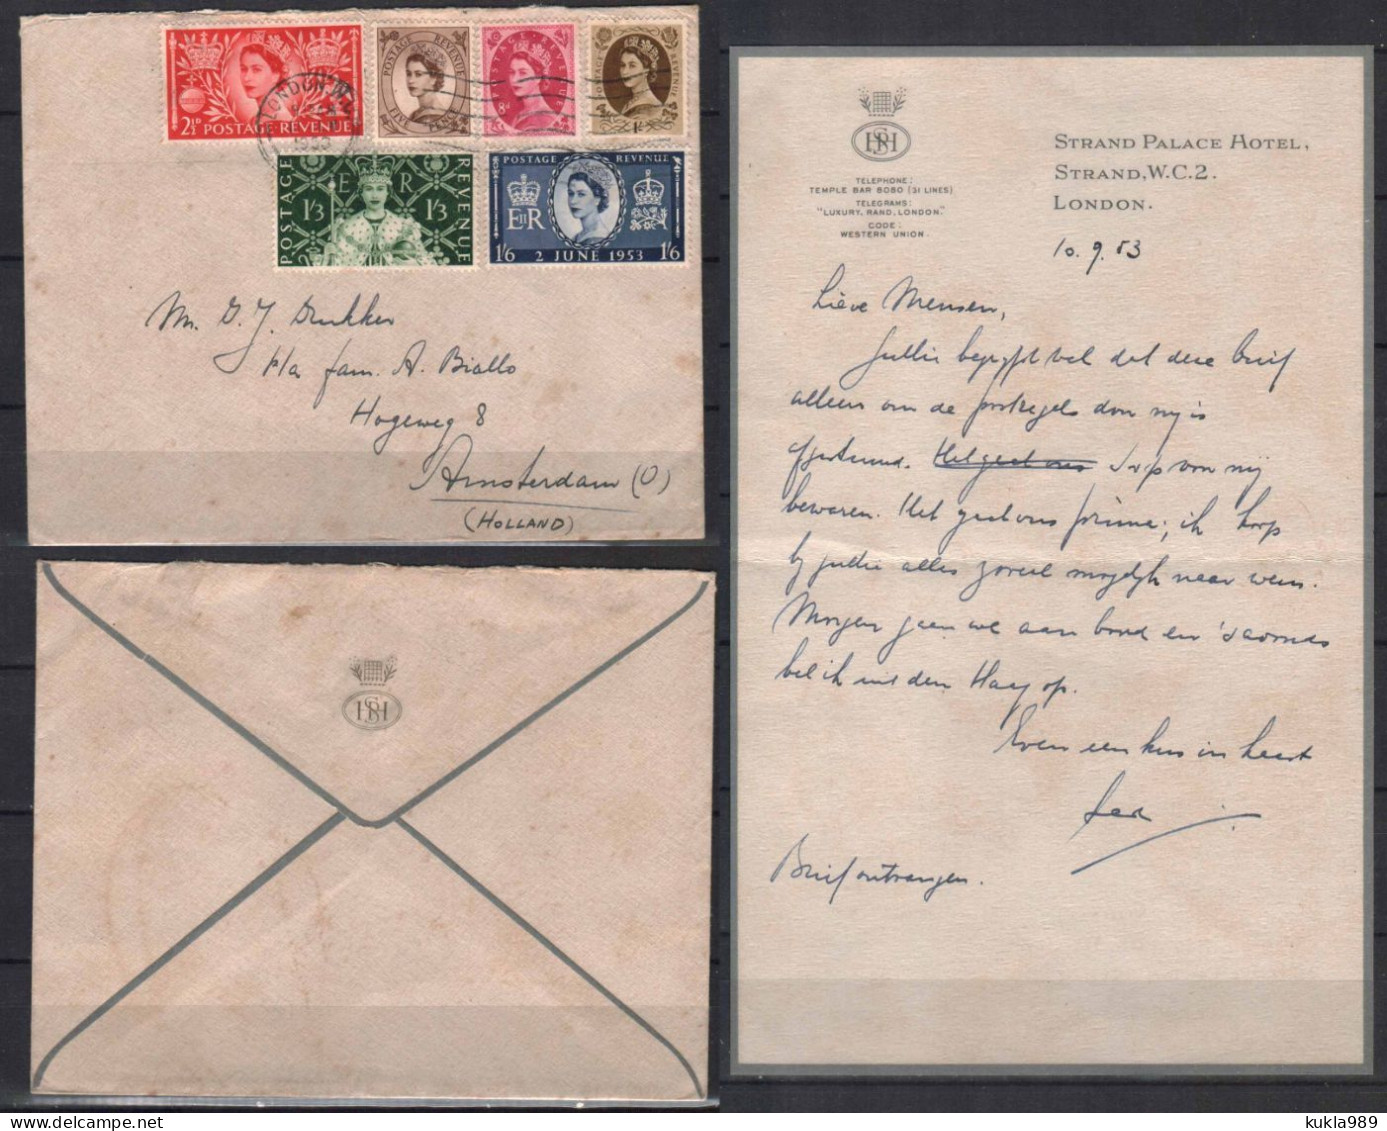 2½D POSTAGE REVENUE
LONDON.W.C.
1953
POSTAGE REVENUE
8D
1/-
POSTAGE REVENUE
E R
1/3 1/3
POSTAGE REVENUE
EIIR
1/6 2 JUNE 1953 1/6
Mr. D. J. Drukker
p/a fam. A. Biallo
Hogeweg 8
Amsterdam (O)
(HOLLAND)
SPH
SPH
TELEPHONE:
TEMPLE BAR 8080 (31 LINES)
TELEGRAMS:
"LUXURY, RAND, LONDON."
CODE:
WESTERN UNION.
STRAND PALACE HOTEL,
STRAND, W.C.2.
LONDON.
10.9.53
Lieve Mensen,
Jullie begrijpt wel dat deze brief
alleen om de postzegels door mij is
gestuurd. Het gaat ons s.v.p. voor mij
bewaren. Het gaat ons prima; ik hoop
bij jullie alles zoveel mogelijk naar wens.
Morgen gaan we aan boord en 's avonds
bel ik uit den Haag op.
Even een kus in haast
Brief ontvangen.
kukla989